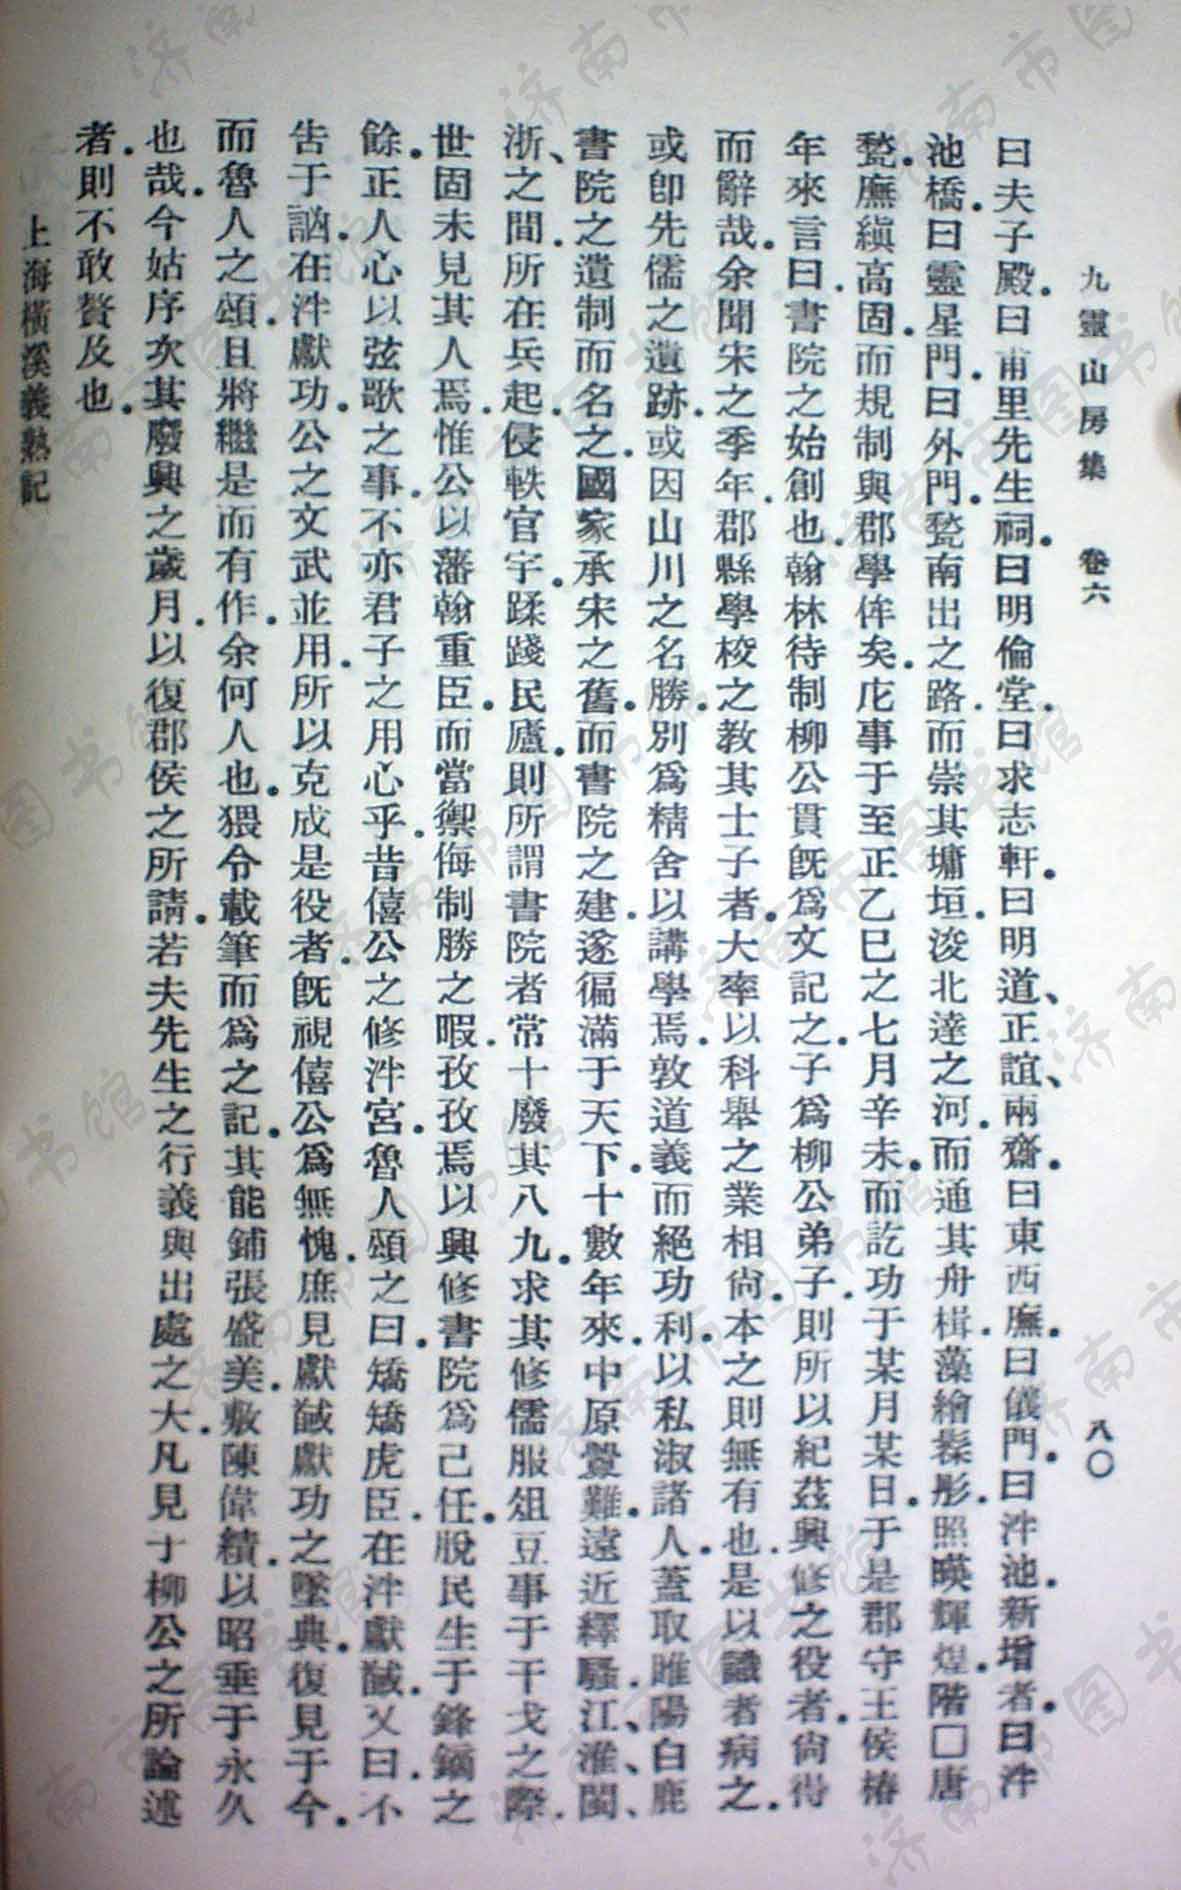 九靈山房集 卷六 八〇
曰夫子殿．曰甫里先生祠．曰明倫堂．曰求志軒．曰明道、正誼、兩齋．曰東西廡．曰儀門．曰泮池．新增者．曰泮
池橋．曰靈星門．曰外門．甃南出之路．而崇其墉垣．浚北達之河．而通其舟楫．藻繪髹彤．照暎輝煌．階□唐
甃．廡縝高固．而規制與郡學侔矣．庀事于至正乙巳之七月辛未．而訖功于某月某日．于是郡守王侯椿
年來言曰．書院之始創也．翰林待制柳公貫旣爲文記之．子爲柳公弟子．則所以紀茲興修之役者．尙得
而辭哉．余聞宋之季年．郡縣學校之教其士子者．大率以科舉之業相尙．本之則無有也．是以識者病之．
或卽先儒之遺跡．或因山川之名勝．別爲精舍以講學焉．敦道義而絕功利．以私淑諸人．蓋取睢陽白鹿
書院之遺制而名之．國家承宋之舊．而書院之建．遂徧滿于天下．十數年來．中原釁難．遠近繹騷．江、淮、閩、
浙、之間．所在兵起．侵軼官宇．蹂踐民廬．則所謂書院者．常十廢其八九．求其修儒服俎豆事于干戈之際．
世固未見其人焉．惟公以藩翰重臣．而當禦侮制勝之暇．孜孜焉以興修書院爲己任．脫民生于鋒鏑之
餘．正人心以弦歌之事．不亦君子之用心乎．昔僖公之修泮宮．魯人頌之曰．矯矯虎臣．在泮獻馘．又曰．不
告于訩．在泮獻功．公之文武並用．所以克成是役者．旣視僖公爲無愧．庶見獻馘獻功之墜典．復見于今．
而魯人之頌．且將繼是而有作．余何人也．猥令載筆而爲之記．其能鋪張盛美．敷陳偉績．以昭垂于永久
也哉．今姑序次其廢興之歲月．以復郡侯之所請．若夫先生之行義與出處之大．凡見于柳公之所論述
者．則不敢贅及也．
上海橫溪義塾記